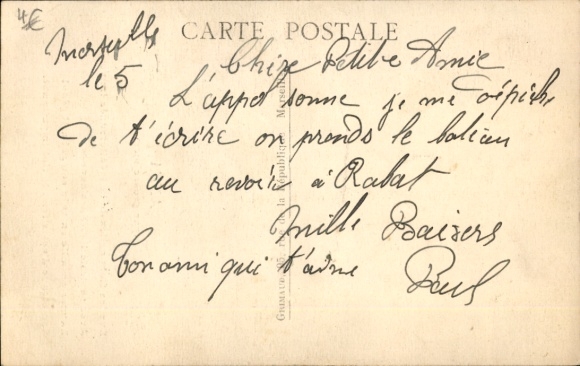 4€
CARTE POSTALE
Marseille
le 5
Chère Petite Amie
L'appel sonne je me dépêche
de t'écrire on prends le bateau
au revoir à Rabat
Mille Baisers
Ton ami qui t'aime Paul
GRIMAUD, Rue de la République, Marseille